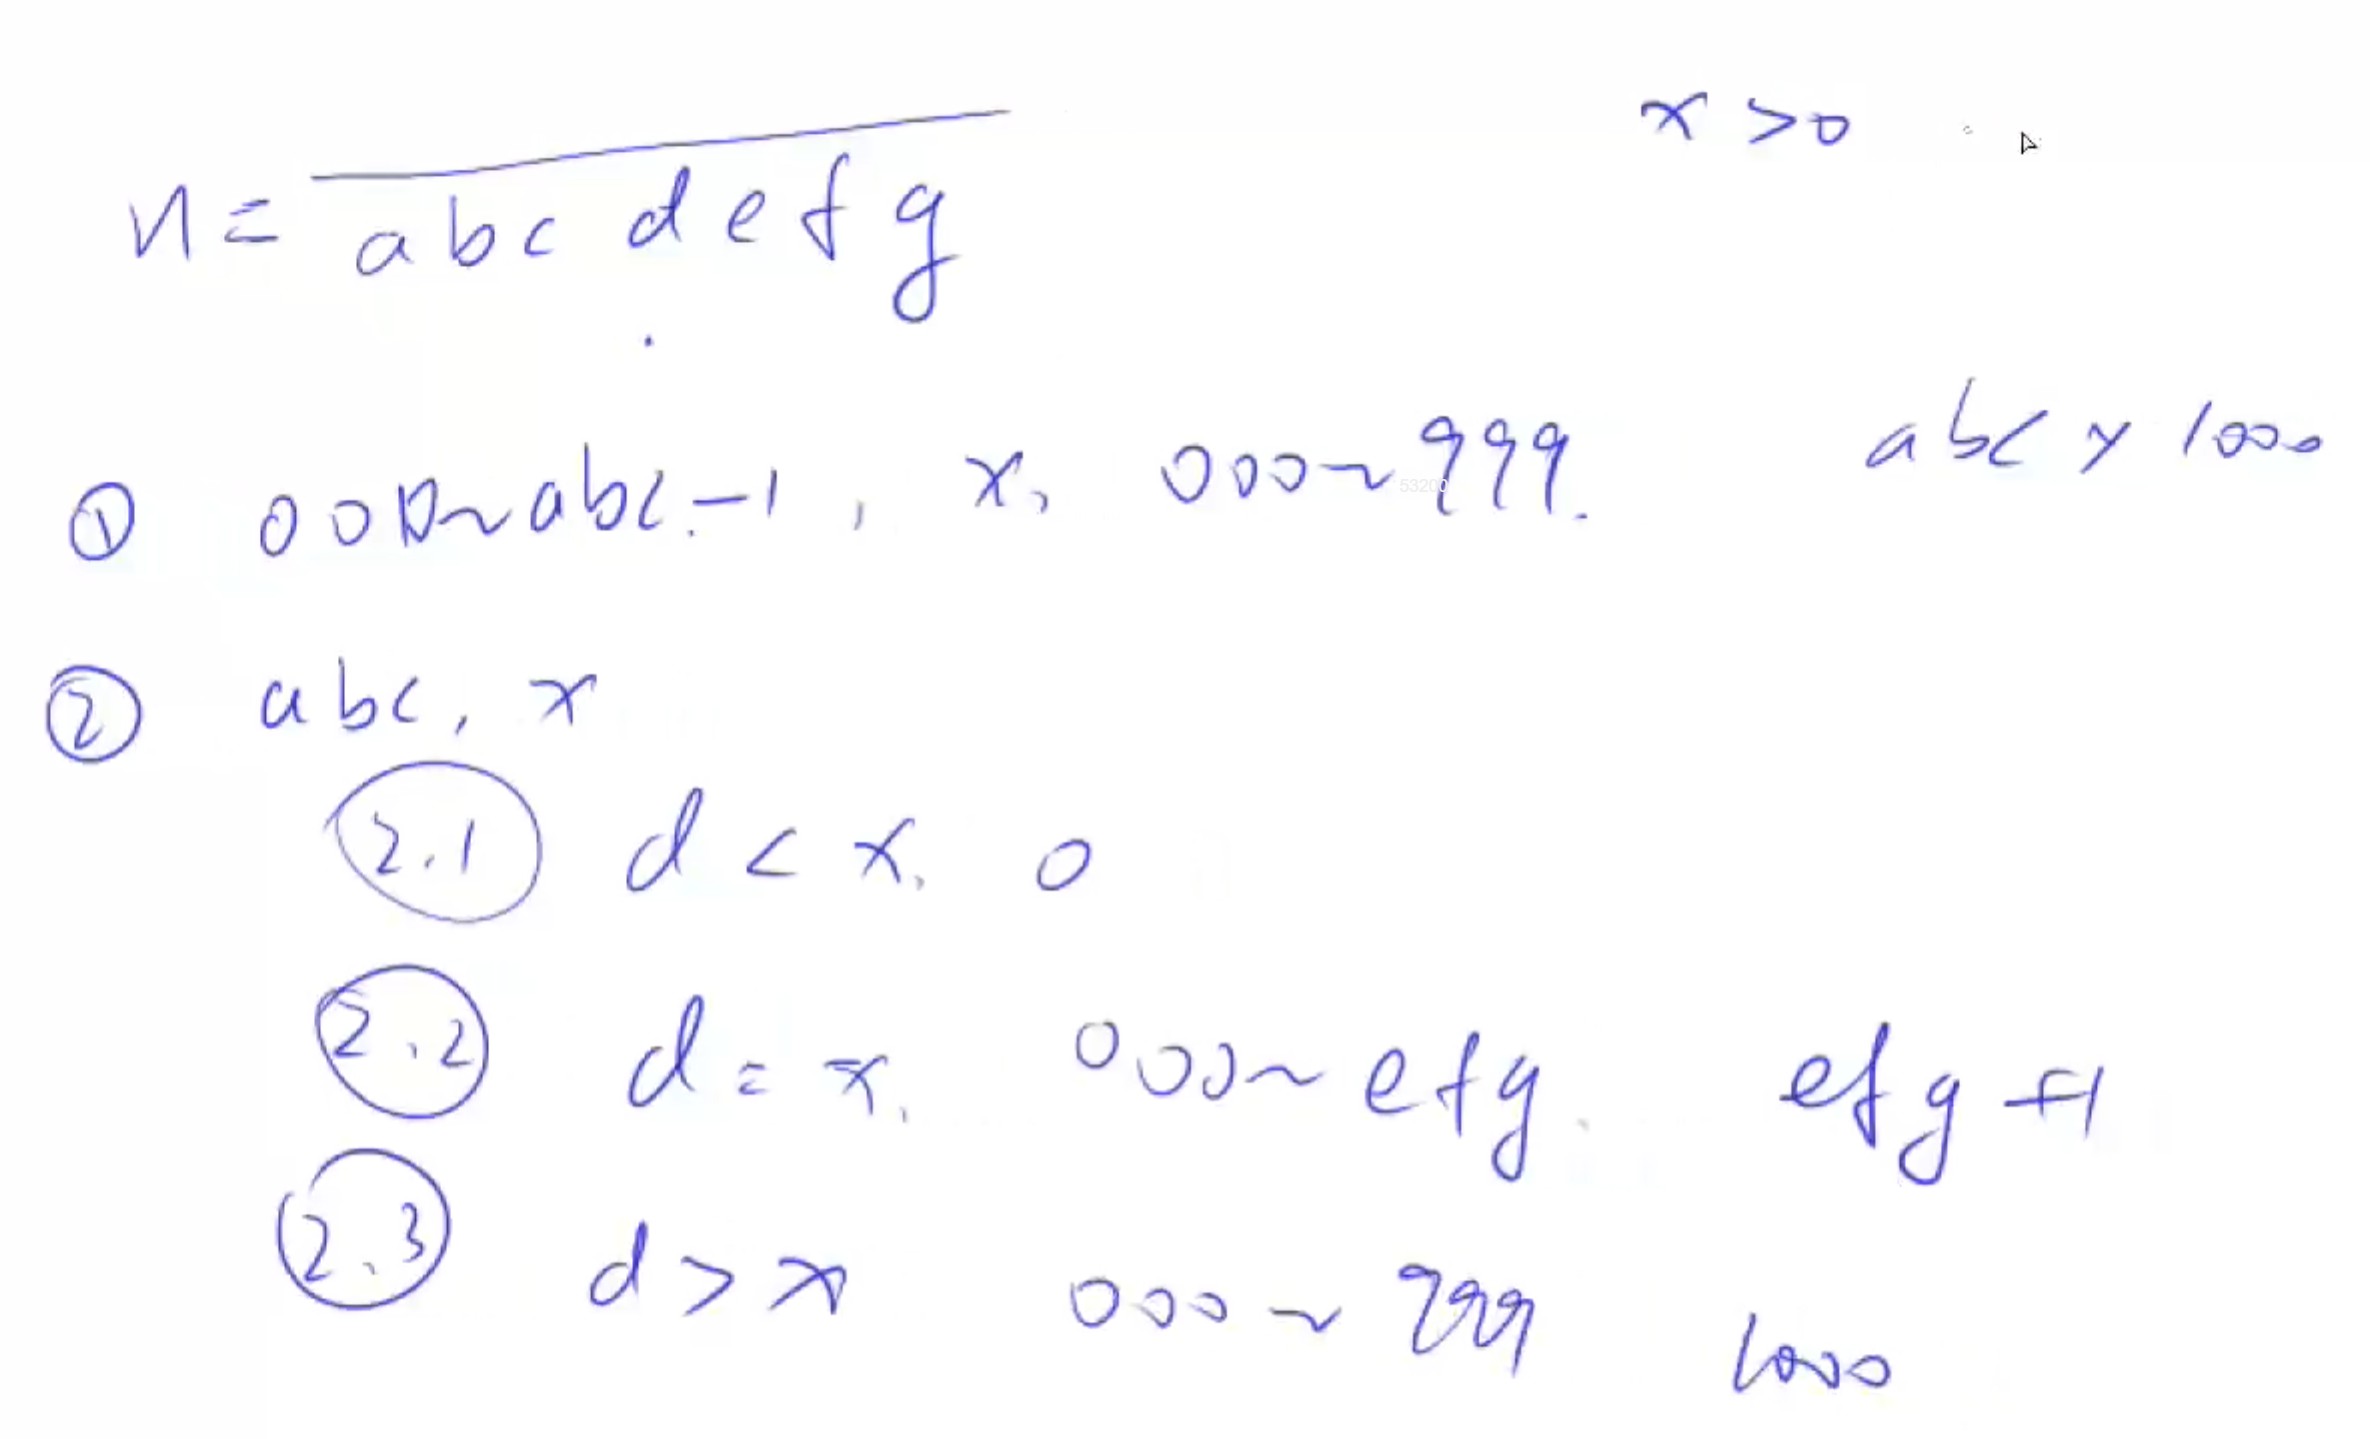 x > 0
n = abc d e f g
① 000~abc-1, x, 000~999. abc × 1000
② abc, x
2.1 d < x, 0
2.2 d = x, 000~efg. efg+1
2.3 d > x 000~999 1000